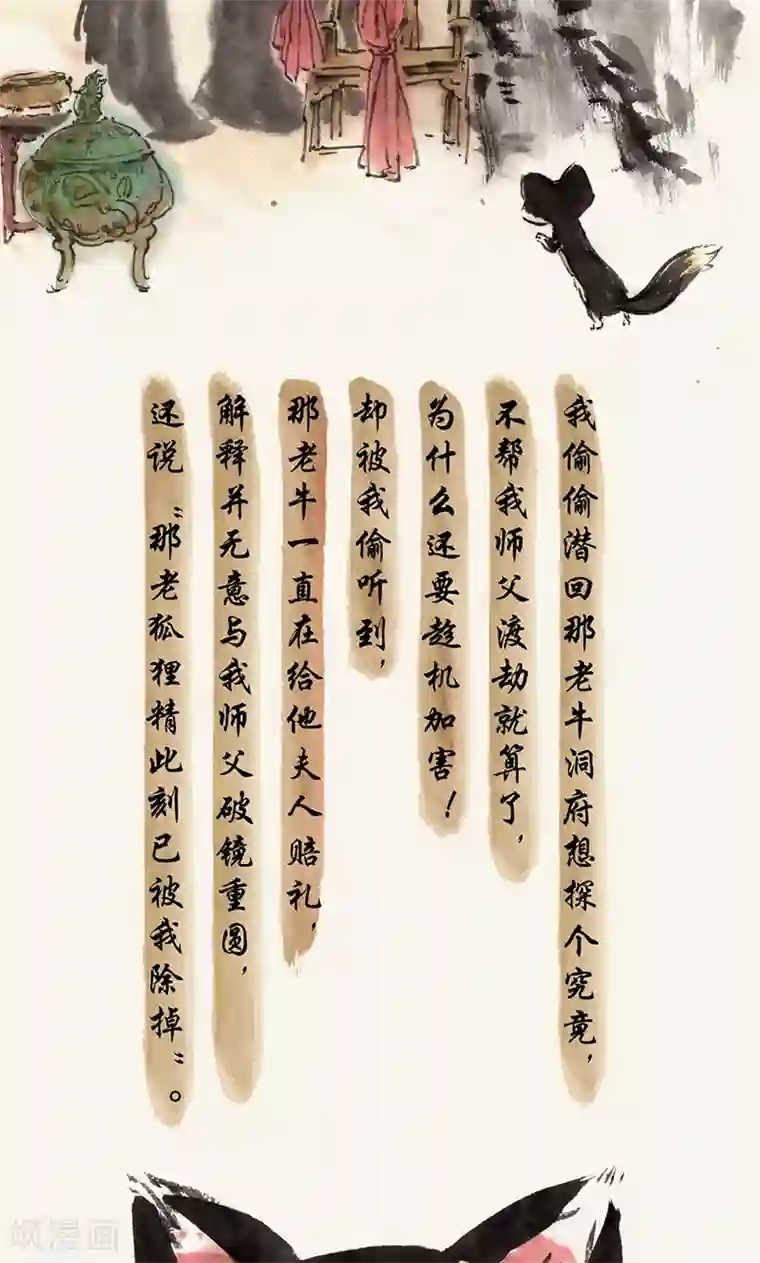 我偷偷潜回那老牛洞府想探个究竟，
不帮我师父渡劫就算了，
为什么还要趁机加害！
却被我偷听到，
那老牛一直在给他夫人赔礼，
解释并无意与我师父破镜重圆，
还说“那老狐狸精此刻已被我除掉”。
飒漫画